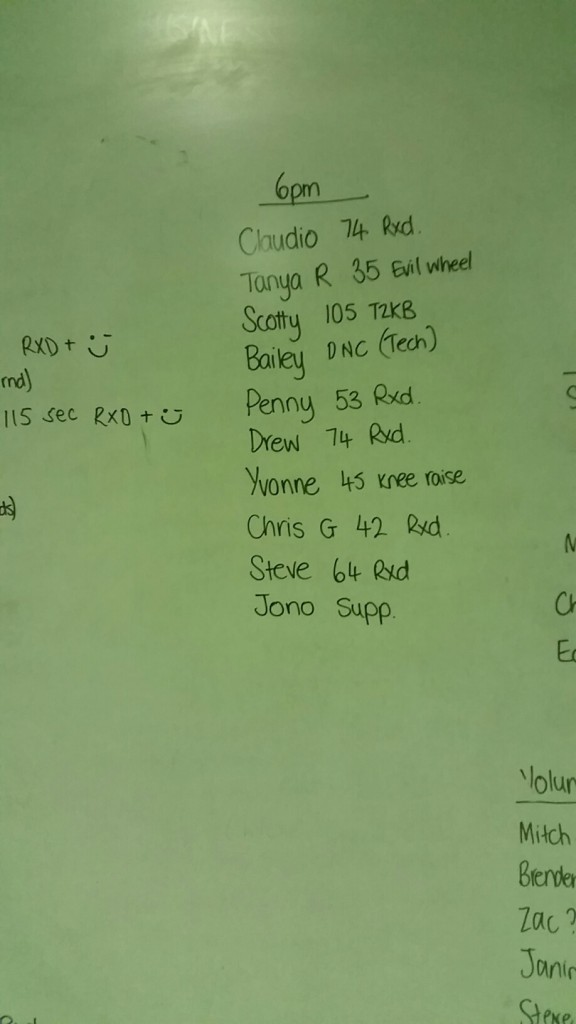 6pm
Claudio 74 Rxd.
Tanya R 35 Evil wheel
Scotty 105 T2KB
Bailey DNC (Tech)
Penny 53 Rxd.
Drew 74 Rxd.
Yvonne 45 knee raise
Chris G 42 Rxd.
Steve 64 Rxd
Jono Supp.
RXD +
rnd)
115 sec RXD +
ds)
Volun
Mitch
Brenden
Zac ?
Janin
Steve